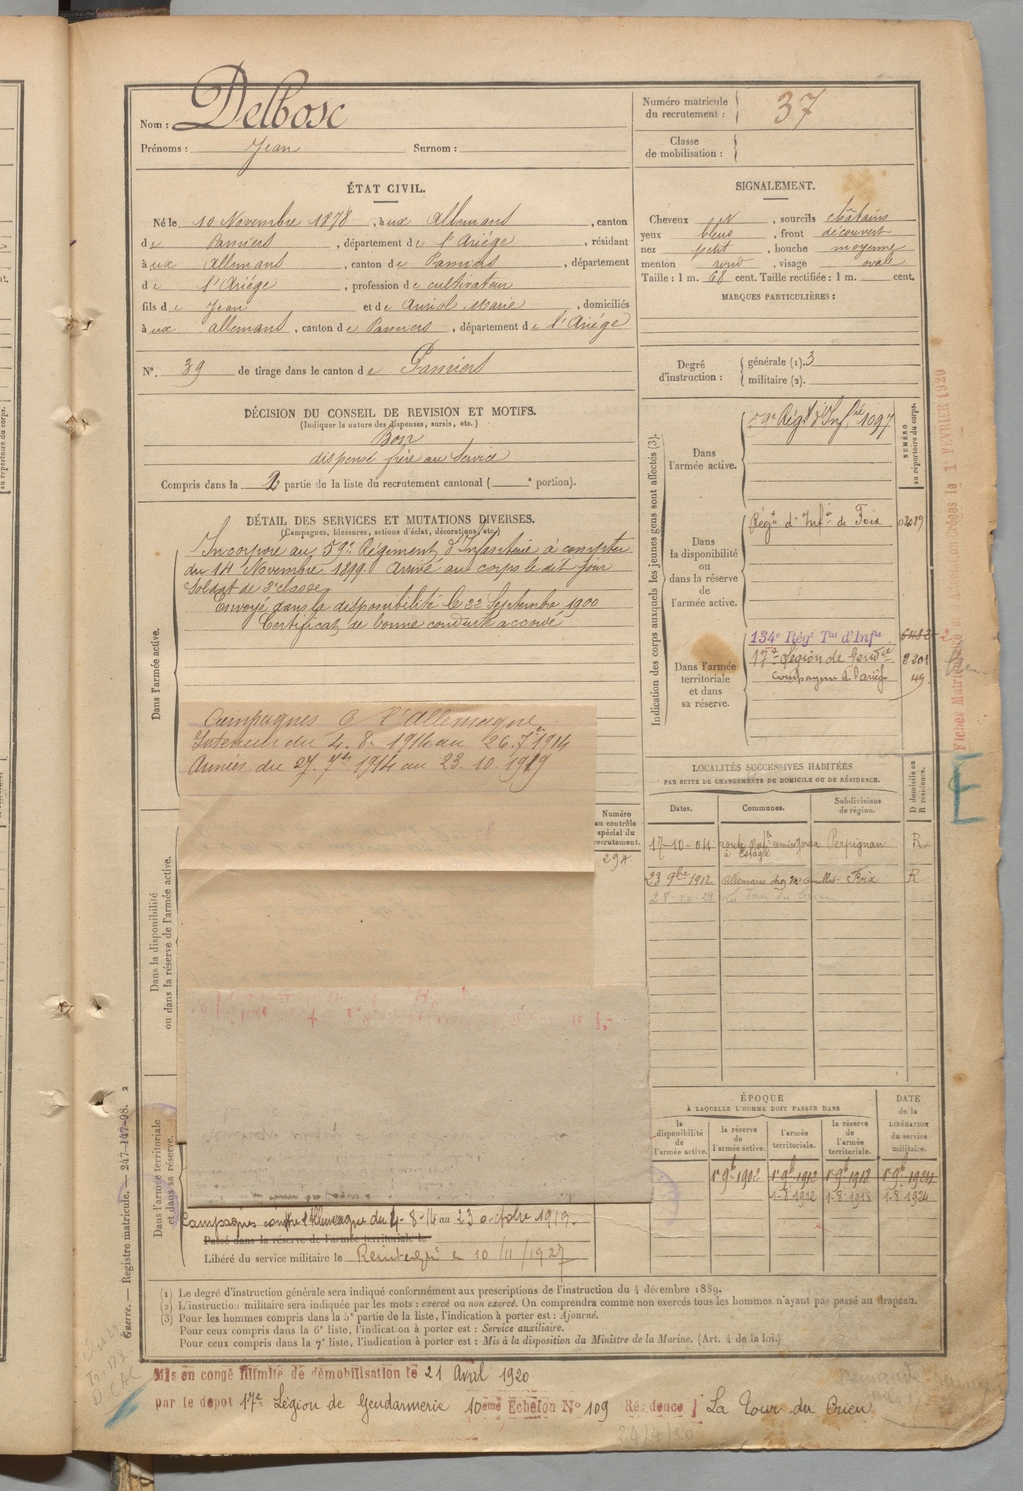 Nom : Delbosc
Prénoms : Jean Surnom :
Numéro matricule du recrutement : 37
Classe de mobilisation :
ÉTAT CIVIL.
Né le 10 Novembre 1878, à ux Allemans, canton
de Pamiers, département de l'Ariége, résidant
à ux Allemans, canton de Pamiers, département
de l'Ariége, profession de cultivateur
fils de Jean et de Auriol Marie, domiciliés
à ux allemans, canton de Pamiers, département de l'Ariége
N°. 39 de tirage dans le canton de Pamiers
SIGNALEMENT.
Cheveux N, sourcils châtains
yeux bleus, front découvert
nez petit, bouche moyenne
menton rond, visage ovale
Taille : 1 m. 68 cent. Taille rectifiée : 1 m. cent.
MARQUES PARTICULIÈRES :
Degré d'instruction : générale (1). 3
militaire (2).
DÉCISION DU CONSEIL DE REVISION ET MOTIFS.
(Indiquer la nature des dispenses, sursis, etc.)
Bon
dispensé frère au service
Compris dans la 2 partie de la liste du recrutement cantonal ( e portion).
DÉTAIL DES SERVICES ET MUTATIONS DIVERSES.
(Campagnes, blessures, actions d'éclat, décorations, etc.)
Dans l'armée active.
Incorporé au 59e Régiment d'Infanterie à compter
du 14 Novembre 1899. Arrivé au corps le dit jour
Soldat de 2e classe
Envoyé dans la disponibilité le 22 Septembre 1900
Certificat de bonne conduite accordé
Campagnes C l'Allemagne
Intérieur du 4. 8. 1914 au 26. 7bre 1914
Armées du 27. 7bre 1914 au 23. 10. 1919
Dans la disponibilité ou dans la réserve de l'armée active.
Numéro au contrôle spécial du recrutement.
294
Dans l'armée territoriale et dans sa réserve.
Campagnes contre l'Allemagne du 4-8-14 au 23 octobre 1919.
Passé dans la réserve de l'armée territoriale le
Libéré du service militaire le
10/11/1927
Indication des corps auxquels les jeunes gens sont affectés (3).
NUMÉRO au répertoire du corps.
Dans l'armée active.
59e Régt d'Infie 1097
Dans la disponibilité ou dans la réserve de l'armée active.
Régt d'Infie de Foix
Dans l'armée territoriale et dans sa réserve.
134e Régt Tal d'Infie
17e Légion de Gendie 8201
49
LOCALITÉS SUCCESSIVES HABITÉES
PAR SUITE DE CHANGEMENTS DE DOMICILE OU DE RÉSIDENCE.
Dates. Communes. Subdivisions de région. D domicile ou R résidence.
17-10-04 à Estagel Perpignan R
23 9bre 1912 Allemans chez Foix R
ÉPOQUE
À LAQUELLE L'HOMME DOIT PASSER DANS
la disponibilité de l'armée active.
la réserve de l'armée active.
l'armée territoriale.
la réserve de l'armée territoriale.
DATE de la LIBÉRATION du service militaire.
1er 9b 1902 1er 9b 1912 1er 9b 1918 1er 9b 1924
1-8-1912 1-8-1918 1-8-1924
(1) Le degré d'instruction générale sera indiqué conformément aux prescriptions de l'instruction du 4 décembre 1889.
(2) L'instruction militaire sera indiquée par les mots : exercé ou non exercé. On comprendra comme non exercés tous les hommes n'ayant pas passé au drapeau.
(3) Pour les hommes compris dans la 5e partie de la liste, l'indication à porter est : Ajourné.
Pour ceux compris dans la 6e liste, l'indication à porter est : Service auxiliaire.
Pour ceux compris dans la 7e liste, l'indication à porter est : Mis à la disposition du Ministre de la Marine. (Art. 4 de la loi.)
Mis en congé illimité de démobilisation le 21 Avril 1920
par le dépot 17e Légion de Gendarmerie 10eme Echelon N° 109 Résidence La Tour du Crieu
Guerre. — Registre matricule. — 247-147-98.